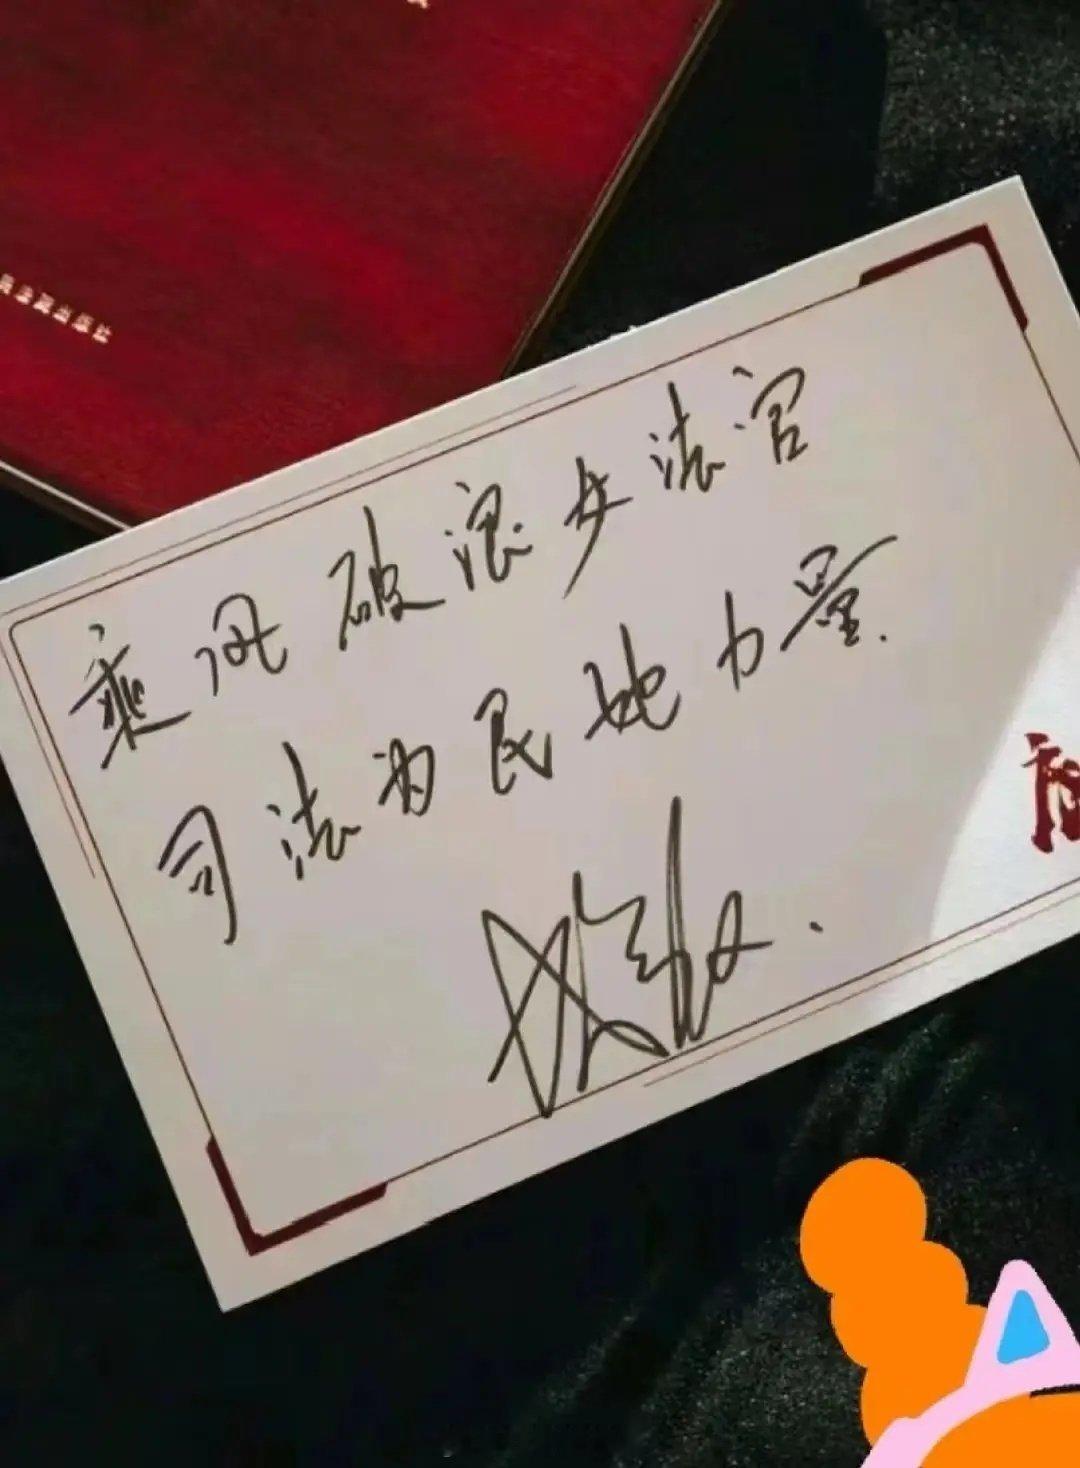 出版社
乘风破浪女法官
司法为民她力量